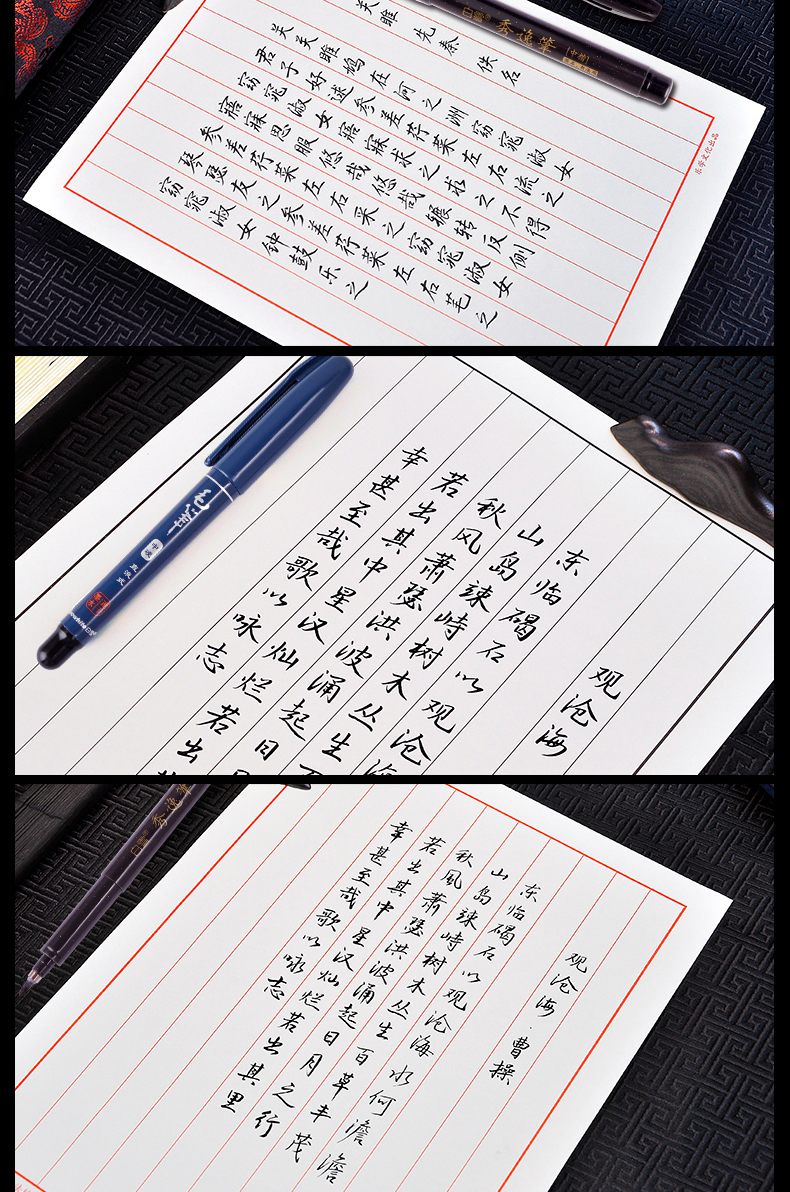 秀逸筆
关雎 先秦 佚名
关关雎鸠在河之洲窈窕淑女
君子好逑参差荇菜左右流之
窈窕淑女寤寐求之求之不得
寤寐思服悠哉悠哉辗转反侧
参差荇菜左右采之窈窕淑女
琴瑟友之参差荇菜左右芼之
窈窕淑女钟鼓乐之
文化出品
毛筆
中楷
直液式
观沧海
东临碣石以观沧海
山岛竦峙树木丛生
秋风萧瑟洪波涌起日
若出其中星汉灿烂若出
幸甚至哉歌以咏志
秀逸筆
观沧海·曹操
东临碣石以观沧海水何澹澹
山岛竦峙树木丛生百草丰茂
秋风萧瑟洪波涌起日月之行
若出其中星汉灿烂若出其里
幸甚至哉歌以咏志